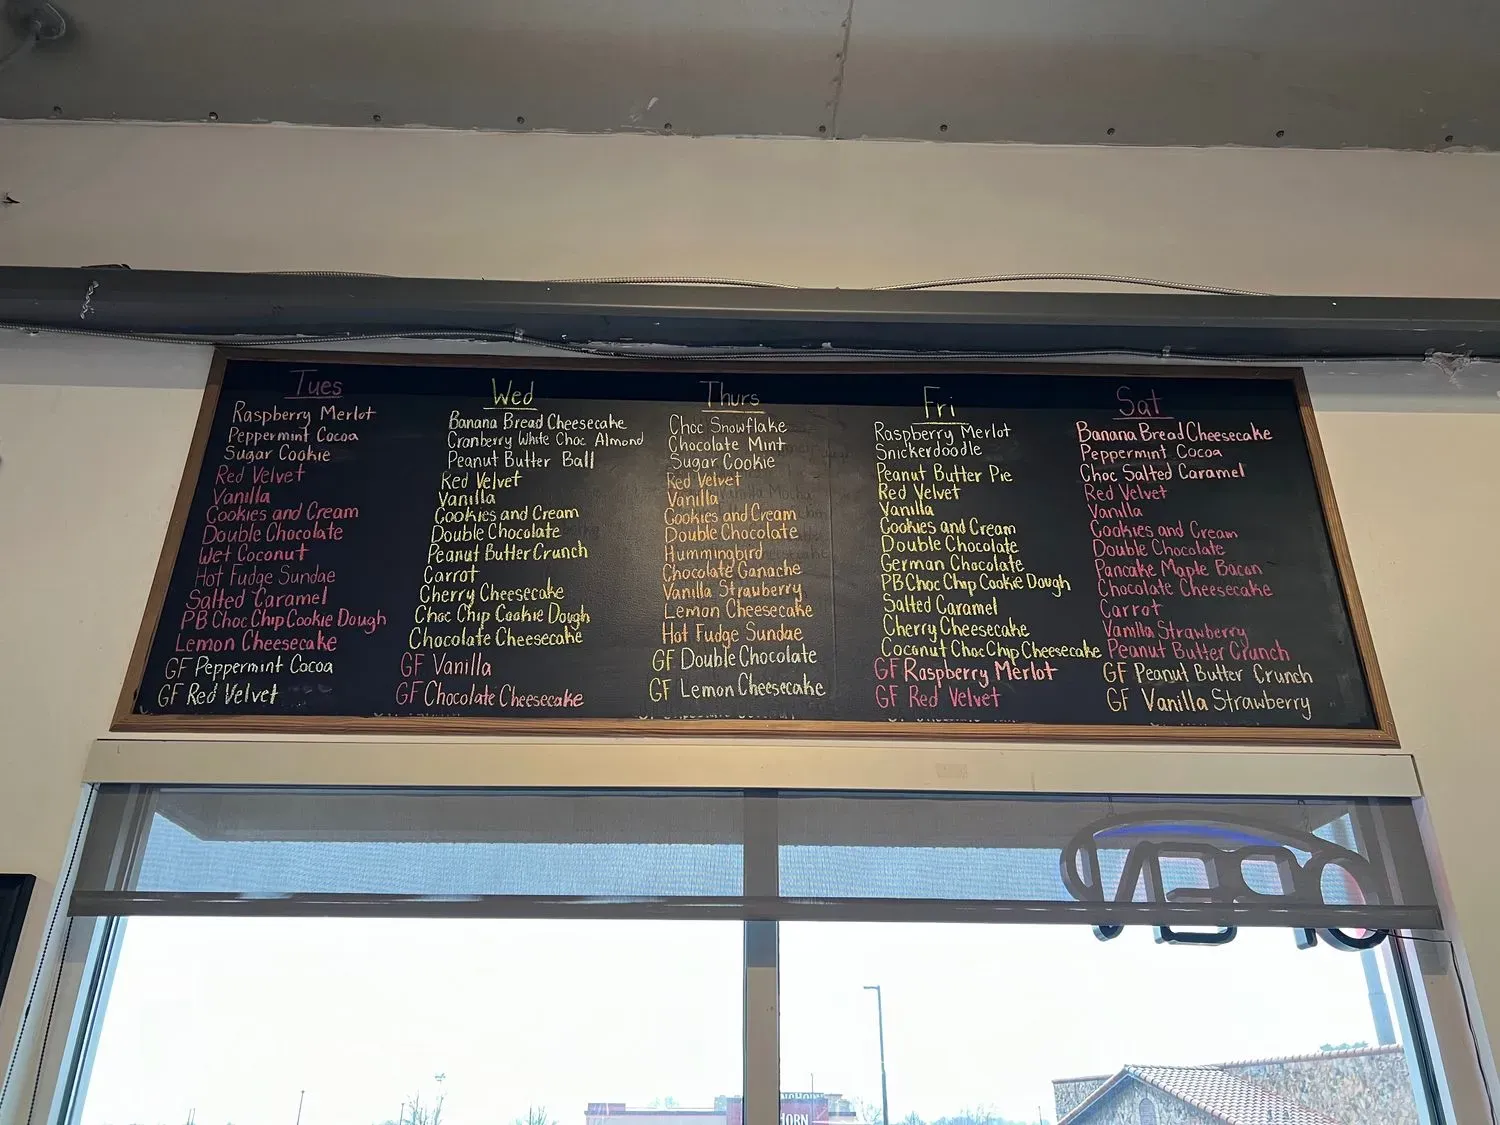 Tues
Raspberry Merlot
Peppermint Cocoa
Sugar Cookie
Red Velvet
Vanilla
Cookies and Cream
Double Chocolate
Wet Coconut
Hot Fudge Sundae
Salted Caramel
PB Choc Chip Cookie Dough
Lemon Cheesecake
GF Peppermint Cocoa
GF Red Velvet
Wed
Banana Bread Cheesecake
Cranberry White Choc Almond
Peanut Butter Ball
Red Velvet
Vanilla
Cookies and Cream
Double Chocolate
Peanut Butter Crunch
Carrot
Cherry Cheesecake
Choc Chip Cookie Dough
Chocolate Cheesecake
GF Vanilla
GF Chocolate Cheesecake
Thurs
Choc Snowflake
Chocolate Mint
Sugar Cookie
Red Velvet
Vanilla
Cookies and Cream
Double Chocolate
Hummingbird
Chocolate Ganache
Vanilla Strawberry
Lemon Cheesecake
Hot Fudge Sundae
GF Double Chocolate
GF Lemon Cheesecake
Fri
Raspberry Merlot
Snickerdoodle
Peanut Butter Pie
Red Velvet
Vanilla
Cookies and Cream
Double Chocolate
German Chocolate
PB Choc Chip Cookie Dough
Salted Caramel
Cherry Cheesecake
Coconut Choc Chip Cheesecake
GF Raspberry Merlot
GF Red Velvet
Sat
Banana Bread Cheesecake
Peppermint Cocoa
Choc Salted Caramel
Red Velvet
Vanilla
Cookies and Cream
Double Chocolate
Pancake Maple Bacon
Chocolate Cheesecake
Carrot
Vanilla Strawberry
Peanut Butter Crunch
GF Peanut Butter Crunch
GF Vanilla Strawberry
OPEN